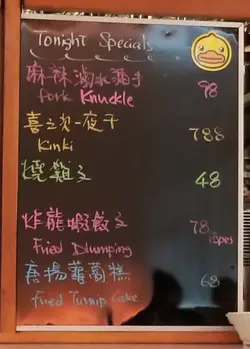 Tonight Specials
麻辣滷水豬手 98
Pork Knuckle
喜之次一夜干 788
Kinki
燒雞叉 48
炸龍蝦餃叉 78
Fried Dlumping 18pcs
唐揚蘿蔔糕 68
Fried Turnip Cake